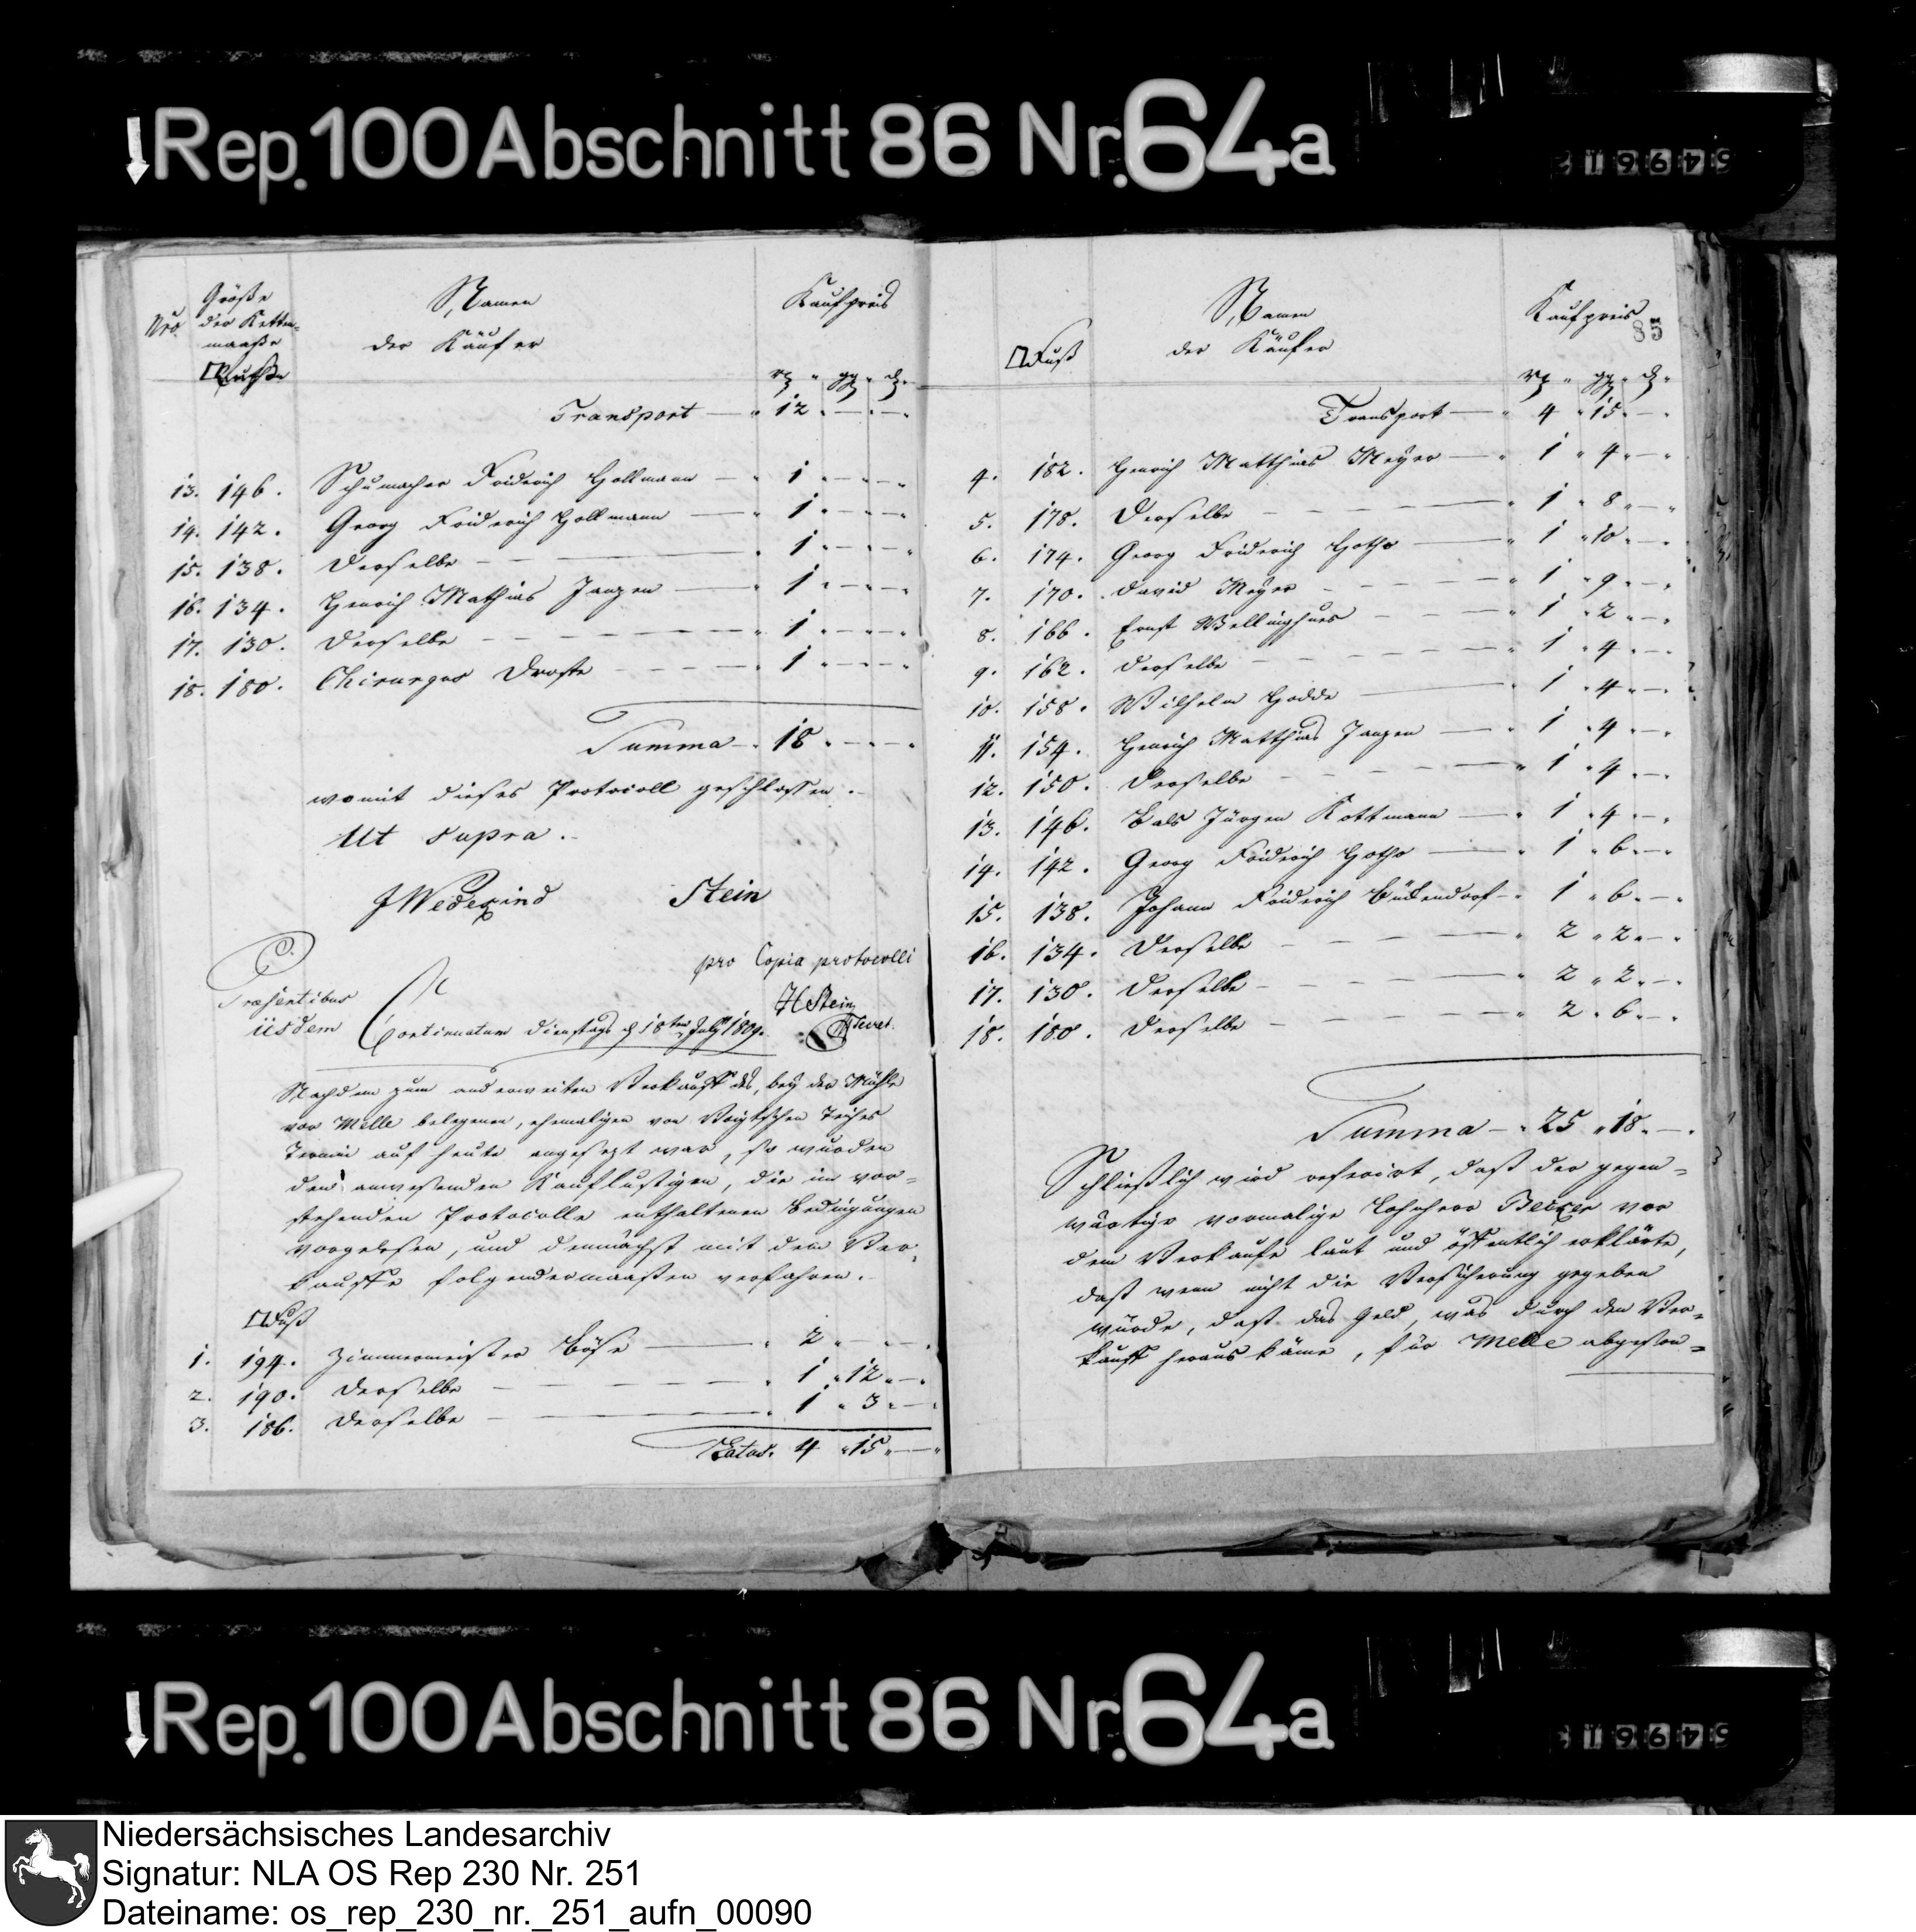 Rep. 100 Abschnitt 86 Nr. 64a
Nro.
Größe
der Ketten-
maaße
□Ruthe
Namen
der Käufer
Kaufpreis
rt " gg " d "
Transport — " 12 " — " — "
13. 146. Schumacher Friderich Hollmann — " 1 " — " — "
14. 142. Georg Friderich Hollmann — " 1 " — " — "
15. 138. Derselbe — " 1 " — " — "
16. 134. Henrich Mathias Janzen — " 1 " — " — "
17. 130. Derselbe — " 1 " — " — "
18. 180. Chirurgus Droste — " 1 " — " — "
Summa — " 18 " — " — "
womit dieses Protocoll geschlossen.
Ut supra.
J Wedekind Stein
pro Copia protocolli
HStein
Secret.
Praesentibus
iisdem
Continuatum Dienstags d 18ten July 1809.
Nachdem zum anderweiten Verkauff des, bey der Mühle
vor Melle belegenen, ehemaligen von Voigtschen Teiches
Termin auf heute angesezt war, so wurden
den anwesenden Kauflustigen, die im vor-
stehenden Protocolle enthaltenen Bedingungen
vorgelesen, und demnächst mit dem Ver-
kauffe folgendermaaßen verfahren.
□Fuß
1. 194. Zimmermeister Böse — " 2 " — " — "
2. 190. Derselbe — " 1 " 12 " — "
3. 186. Derselbe — " 1 " 3 " — "
Latus. 4 " 15 " — "
85
□Fuß
Namen
der Käufer
Kaufpreis
rt " gg " d "
Transport — " 4 " 15 " — "
4. 182. Henrich Matthias Meyer — " 1 " 4 " — "
5. 178. Derselbe — " 1 " 8 " — "
6. 174. Georg Friderich Hothe — " 1 " 10 " — "
7. 170. David Meyer — " 1 " 9 " — "
8. 166. Ernst Wellinghues — " 1 " 2 " — "
9. 162. Derselbe — " 1 " 4 " — "
10. 158. Wilhelm Hodde — " 1 " 4 " — "
11. 154. Henrich Matthias Janzen — " 1 " 4 " — "
12. 150. Derselbe — " 1 " 4 " — "
13. 146. Jürgen Kottmann — " 1 " 4 " — "
14. 142. Georg Friderich Hothe — " 1 " 6 " — "
15. 138. Johann Friderich Bükendorf — " 1 " 6 " — "
16. 134. Derselbe — " 2 " 2 " — "
17. 130. Derselbe — " 2 " 2 " — "
18. 180. Derselbe — " 2 " 6 " — "
Summa — " 25 " 18 " — "
Schließlich wird referirt, daß der gegen-
wärtige vormalige Lohnherr Becker vor
dem Verkaufe laut und öffentlich erklärte,
daß wenn nicht die Versicherung gegeben
würde, daß das Geld, was durch den Ver-
kauff heraus käme, für Melle abgeson-
Rep. 100 Abschnitt 86 Nr. 64a
Niedersächsisches Landesarchiv
Signatur: NLA OS Rep 230 Nr. 251
Dateiname: os_rep_230_nr._251_aufn_00090